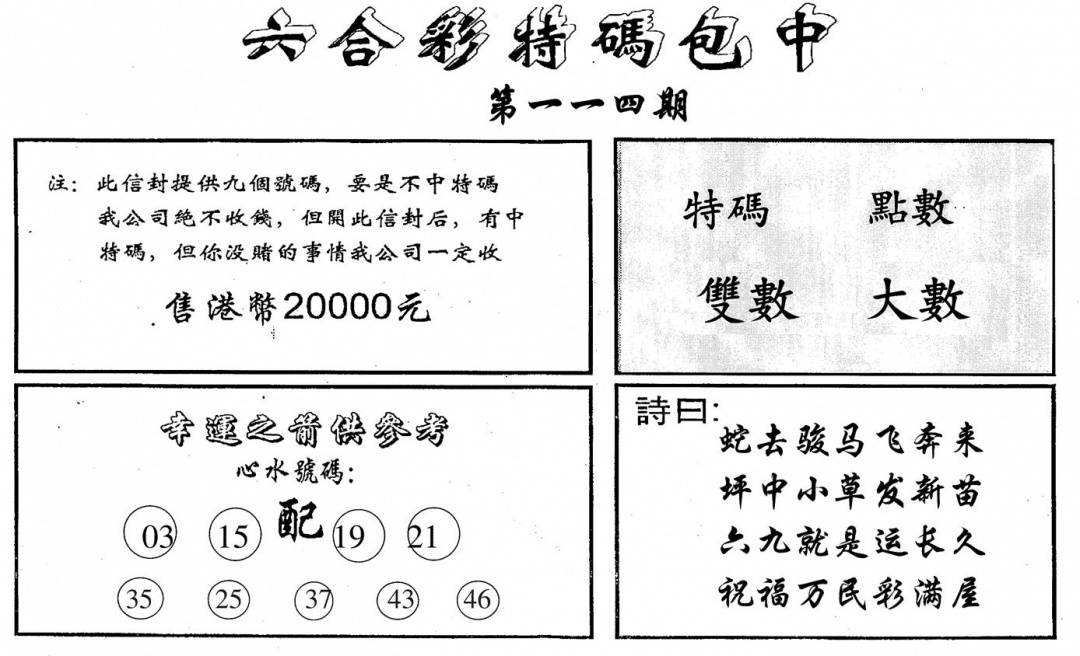 六合彩特碼包中
第一一四期
注：此信封提供九個號碼，要是不中特碼
我公司絕不收錢，但開此信封后，有中
特碼，但你没賭的事情我公司一定收
售港幣20000元
特碼 點數
雙數 大數
幸運之箭供參考
心水號碼：
03 15 配 19 21
35 25 37 43 46
詩曰：
蛇去骏马飞奔来
坪中小草发新苗
六九就是运长久
祝福万民彩满屋